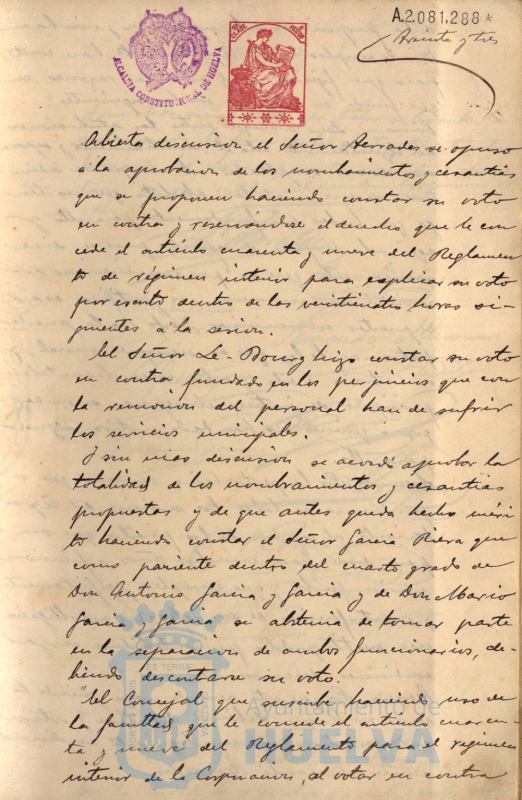 A.2.081.288*
Treinta y tres
ALCALDIA CONSTITUCIONAL DE HUELVA
Abierta discusion el Señor Terrades se opuso
á la aprobacion de los nombramientos y cesantias
que se proponen haciendo constar su voto
en contra y reservandose el derecho que le con
cede el artículo cuarenta y nueve del Reglamen
to de régimen interior para esplicar su voto
por escrito dentro de las veinticuatro horas si-
guientes á la sesion.
El Señor Le-Bourg hizo constar su voto
en contra fundado en los perjuicios que con
la remocion del personal han de sufrir
los servicios municipales.
Y sin mas discusion se acordó aprobar la
totalidad de los nombramientos y cesantias
propuestas y de que antes queda hecho méri-
to haciendo constar el Señor Garcia Riera que
como pariente dentro del cuarto grado de
Don Antonio Garcia y Garcia y de Don Mario
Garcia y Garcia se abtenia de tomar parte
en la separacion de ambos funcionarios, de-
biendo descontarse su voto.
"El Concejal que suscribe haciendo uso de
la facultad que le concede el artículo cuaren-
ta y nueve del Reglamento para el régimen
interior de la Corporacion, al votar en contra
Ayuntamiento de
HUELVA